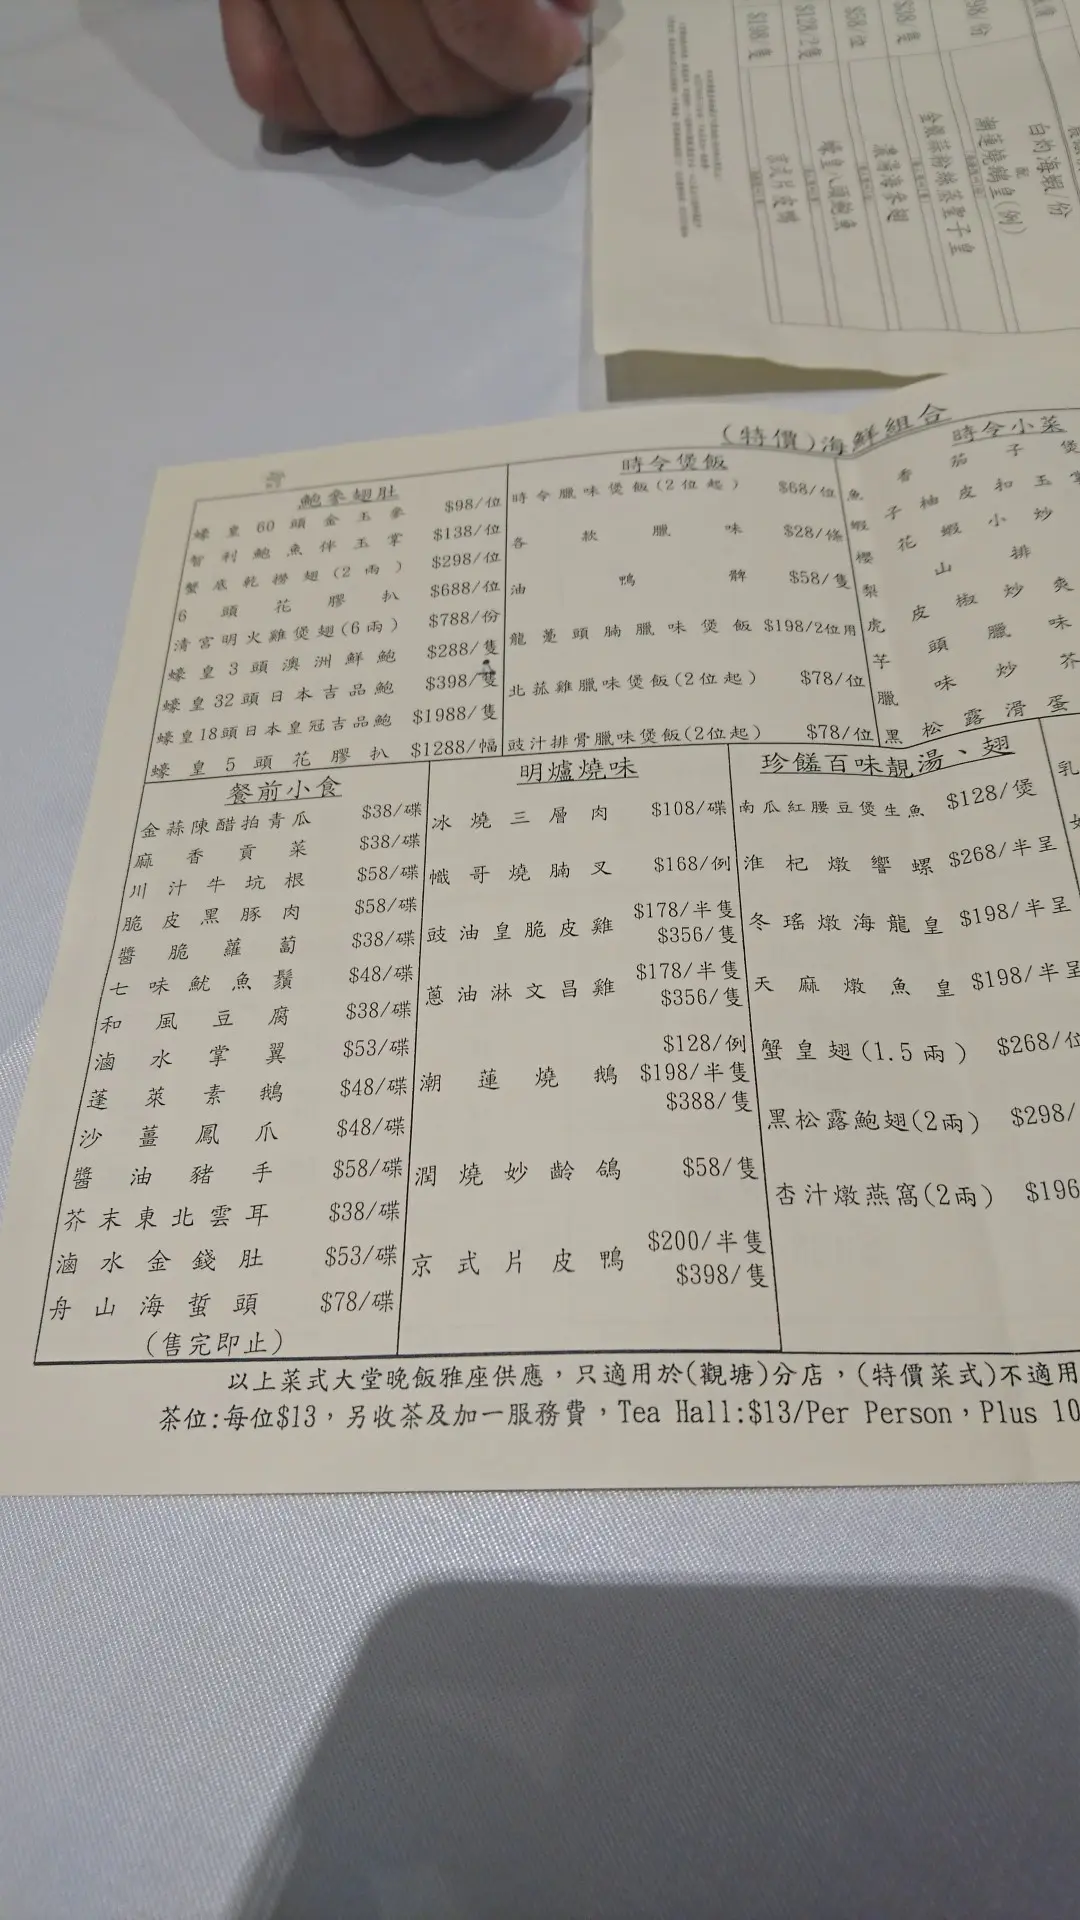 $198/隻
$128/2隻
$58/位
$38/隻
98/份
京式片皮鴨
蠔皇八頭鮑魚
金銀蒜粉絲蒸聖子皇
潮蓮燒鵝皇(例)
白灼海蝦/份
(特價)海鮮組合
鮑參翅肚
蠔皇60頭金玉參 $98/位
智利鮑魚伴玉掌 $138/位
蟹底乾撈翅(2兩) $298/位
6頭花膠扒 $688/位
清宮明火雞煲翅(6兩) $788/份
蠔皇3頭澳洲鮮鮑 $288/隻
蠔皇32頭日本吉品鮑 $398/隻
蠔皇18頭日本皇冠吉品鮑 $1988/隻
蠔皇5頭花膠扒 $1288/幅
時令煲飯
時令臘味煲飯(2位起) $68/位
各款臘味 $28/條
油鴨髀 $58/隻
龍躉頭腩臘味煲飯 $198/2位用
北菰雞臘味煲飯(2位起) $78/位
豉汁排骨臘味煲飯(2位起) $78/位
時令小菜
魚香茄子煲
蝦子柚皮扣玉掌
櫻花蝦小炒
梨山排
虎皮椒炒爽
芋頭臘味
臘味炒芥
黑松露滑蛋
餐前小食
金蒜陳醋拍青瓜 $38/碟
麻香貢菜 $38/碟
川汁牛坑根 $58/碟
脆皮黑豚肉 $58/碟
醬脆蘿蔔 $38/碟
七味魷魚鬚 $48/碟
和風豆腐 $38/碟
滷水掌翼 $53/碟
蓬萊素鵝 $48/碟
沙薑鳳爪 $48/碟
醬油豬手 $58/碟
芥末東北雲耳 $38/碟
滷水金錢肚 $53/碟
舟山海蜇頭 $78/碟
(售完即止)
明爐燒味
冰燒三層肉 $108/碟
幟哥燒腩叉 $168/例
豉油皇脆皮雞 $178/半隻
$356/隻
蔥油淋文昌雞 $178/半隻
$356/隻
$128/例
潮蓮燒鵝 $198/半隻
$388/隻
潤燒妙齡鴿 $58/隻
京式片皮鴨 $200/半隻
$398/隻
珍饈百味靚湯、翅
南瓜紅腰豆煲生魚 $128/煲
淮杞燉響螺 $268/半呈
冬瑤燉海龍皇 $198/半呈
天麻燉魚皇 $198/半呈
蟹皇翅(1.5兩) $268/位
黑松露鮑翅(2兩) $298/
杏汁燉燕窩(2兩) $196
乳
以上菜式大堂晚飯雅座供應，只適用於(觀塘)分店，(特價菜式)不適用
茶位:每位$13，另收茶及加一服務費，Tea Hall:$13/Per Person，Plus 10